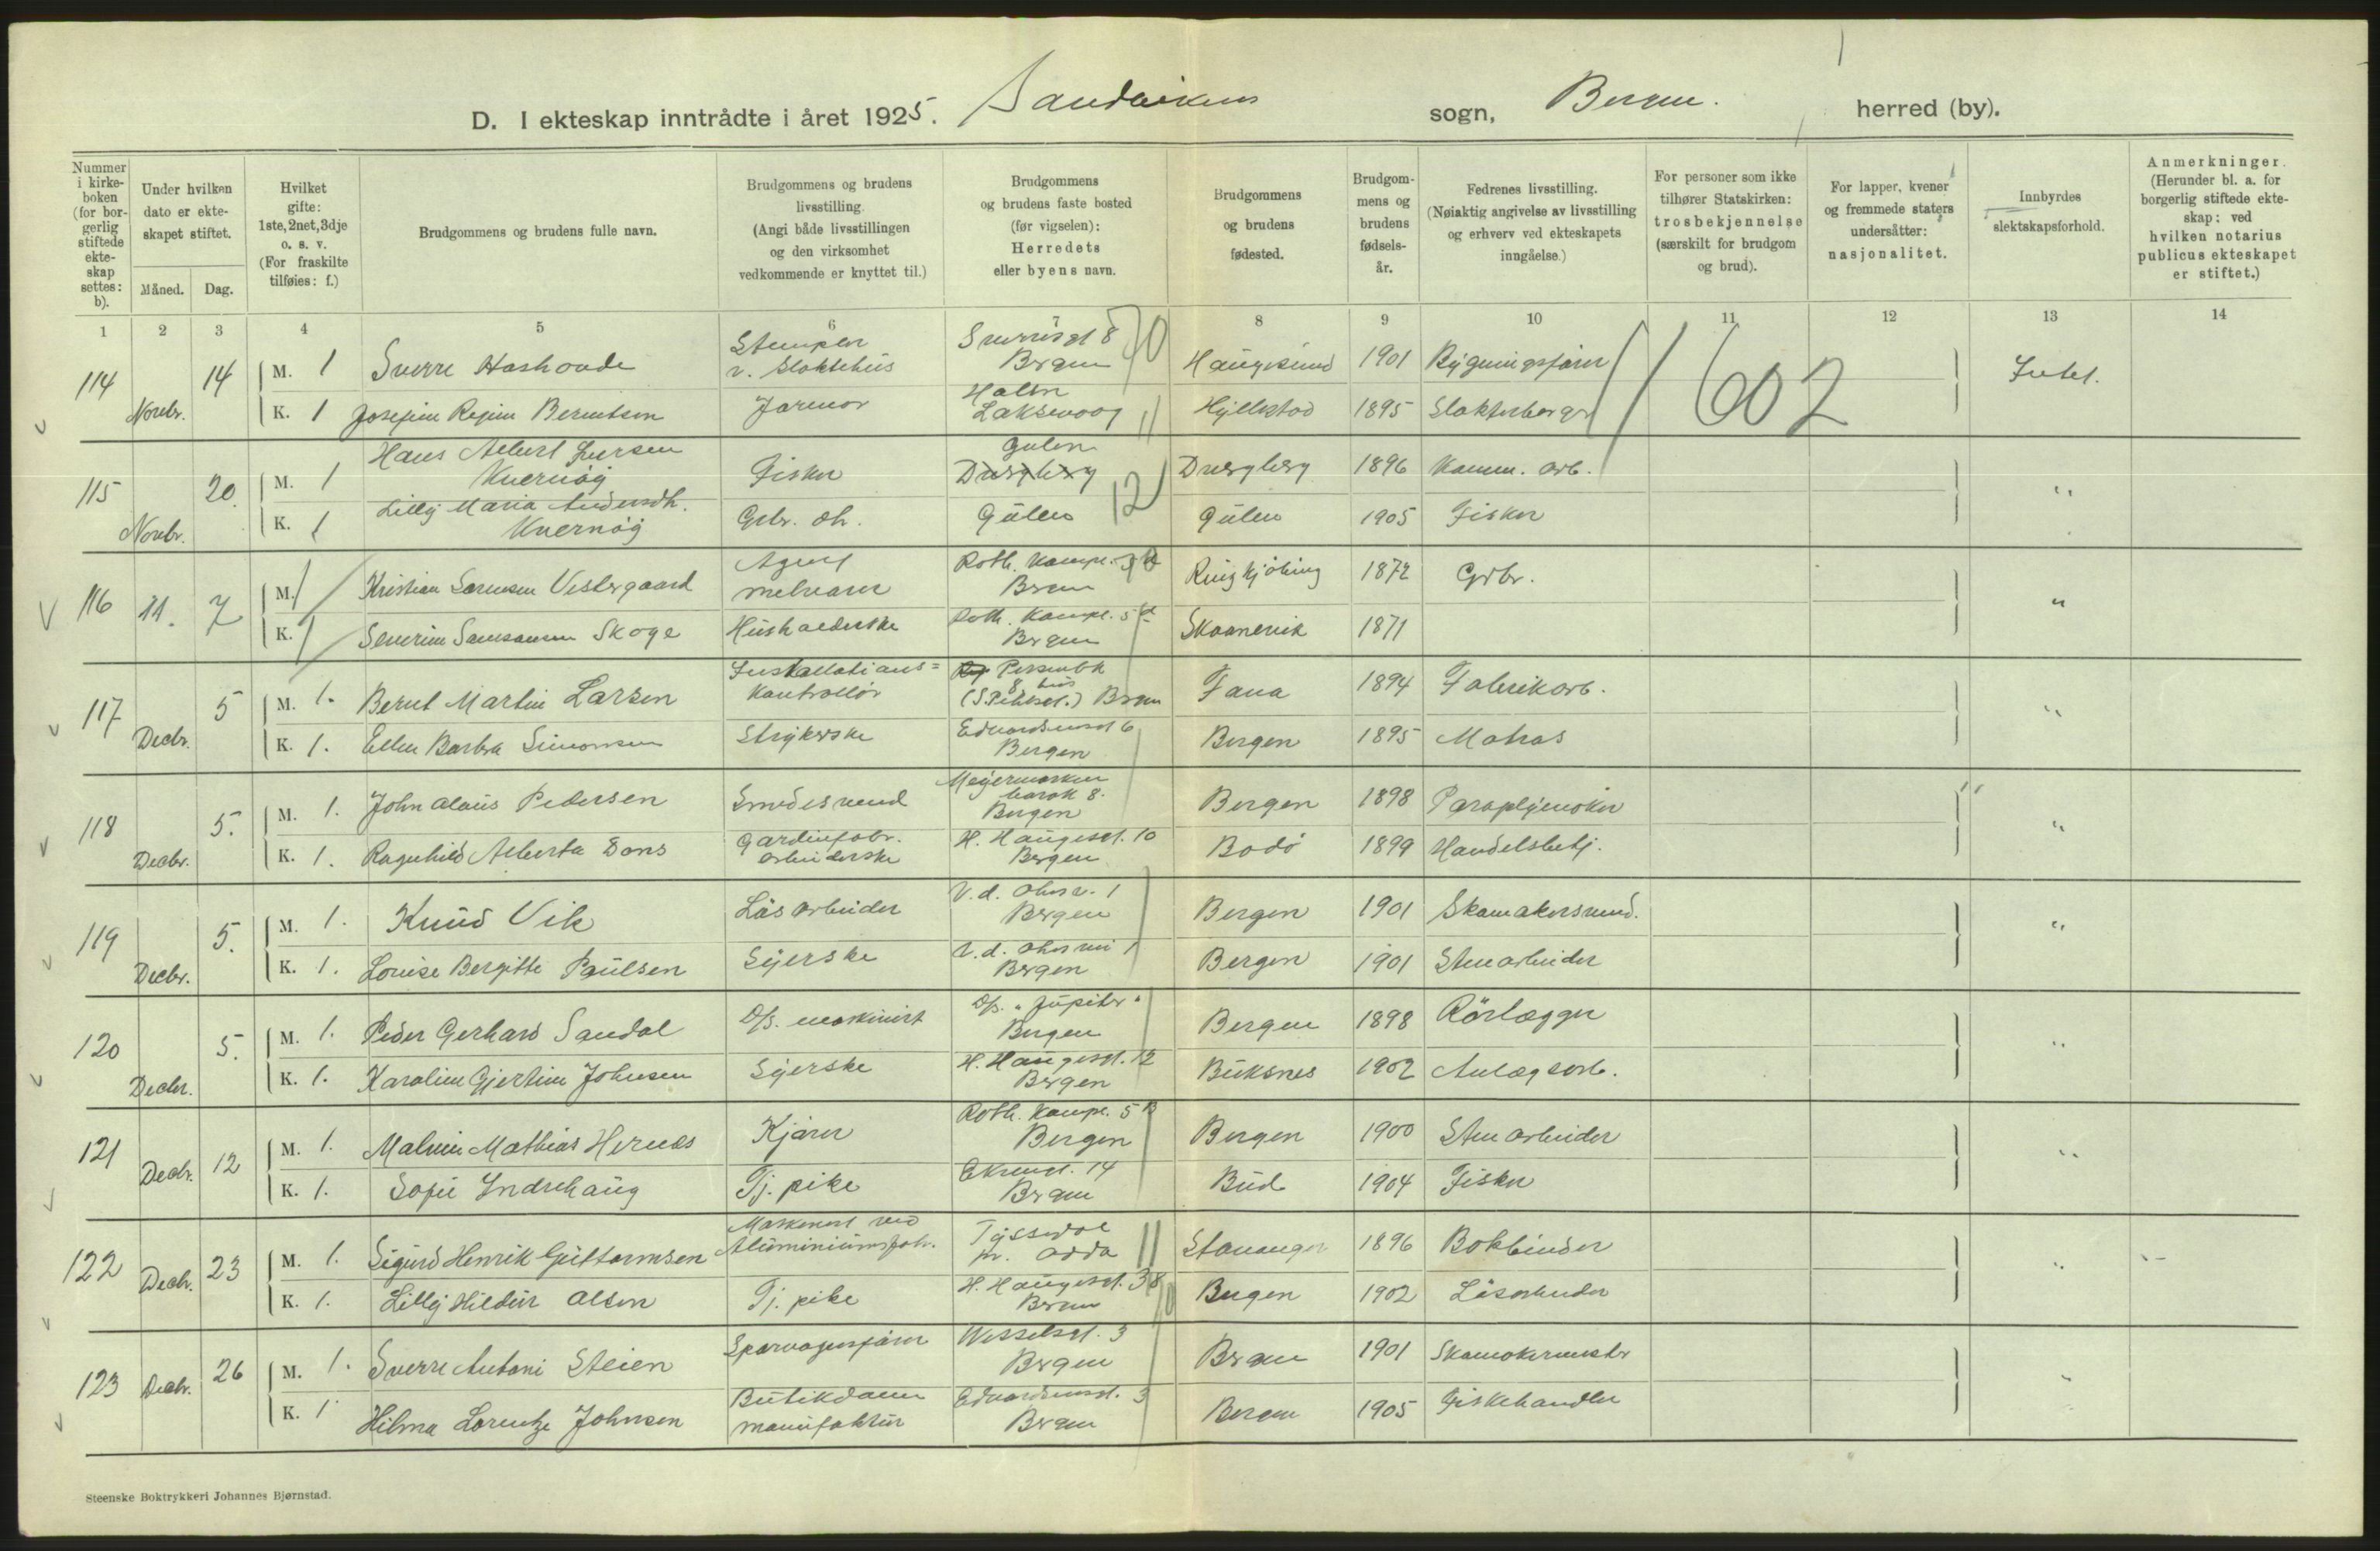 D. I ekteskap inntrådte i året 1925. Sandvikens sogn, Bergen. herred (by).
Nummer i kirke-boken (for bor-gerlig stiftede ekte-skap settes: b).
Under hvilken dato er ekte-skapet stiftet.
Måned. Dag.
Hvilket gifte: 1ste, 2net, 3dje o. s. v. (For fraskilte tilføies: f.)
Brudgommens og brudens fulle navn.
Brudgommens og brudens livsstilling. (Angi både livsstillingen og den virksomhet vedkommende er knyttet til.)
Brudgommens og brudens faste bosted (før vigselen): Herredets eller byens navn.
Brudgommens og brudens fødested.
Brudgom-mens og brudens fødsels-år.
Fedrenes livsstilling. (Nøiaktig angivelse av livsstilling og erhverv ved ekteskapets inngåelse.)
For personer som ikke tilhører Statskirken: trosbekjennelse (særskilt for brudgom og brud).
For lapper, kvener og fremmede staters undersåtter: nasjonalitet.
Innbyrdes slektskapsforhold.
Anmerkninger. (Herunder bl. a. for borgerlig stiftede ekte-skap: ved hvilken notarius publicus ekteskapet er stiftet.)
1 2 3 4 5 6 7 8 9 10 11 12 13 14
114 Novbr. 14 M. 1 Sverre v. Slaktehus Bergen Haugesund 1901 Intet.
K. 1 Josefine Regine Berntsen Holen Laksevaag Hyllestad 1895
1602
115 Novbr. 20. M. 1 Hans Albert Larsen Kvernøy Fisker Gulen Dvergberg Dvergberg 1896 Komm. arb. "
K. 1 Lilly Maria Andersdtr. Kvernøy Grbr. dtr. Gulen Gulen 1905 Fisker
12
116 11. 7 M. 1 Kristian Sørensen Vestergaard Agent Bergen Ringkjøbing 1872 Grbr. "
K. 1 Severine Samsonsen Skoge Husholderske Roth. Kampe. 5 d Bergen Skaanevik 1871
117 Decbr. 5 M. 1. Bernt Martin Larsen Installations= kontrollør Bergen Fana 1894 Fabrikarb. "
K. 1. Ellen Barbra Simonsen Strykerske Edvardsensgt 6 Bergen Bergen 1895 Matros
118 Decbr. 5. M. 1. John Olaus Pedersen Smedesvend Meyermarken barak 8. Bergen Bergen 1898 Paraplymaker "
K. 1. Ragnhild Alberta Dons Gardinfabr. arbeiderske H. Haugesgt. 10 Bergen Bodø 1899 Handelsbetj.
119 Decbr. 5. M. 1. Knud Vik Løsarbeider Bergen Bergen 1901 Skomakersvend. "
K. 1. Louise Bergitte Paulsen Syerske Bergen Bergen 1901 Stenarbeider
120 Decbr. 5. M. 1. Peder Gerhard Sandal D/s. maskinist D/s. "Jupiter" Bergen Bergen 1898 Rørlægger "
K. 1. Karoline Gjertine Johnsen Syerske H. Haugesgt. 12 Bergen Buksnes 1902 Anlægsarb.
121 Decbr. 12 M. 1. Malvin Mathias Hernes Kjører Roth. Kampe. 5 B Bergen Bergen 1900 Stenarbeider "
K. 1. Sofie Yndrehaug Tj. pike Ekrengt. 14 Bergen Bud 1904 Fisker
122 Decbr. 23 M. 1. Sigurd Henrik Guttormsen Maskinist ved Aluminiumsfabr. Tyssedal pr. Odda Stavanger 1896 Bokbinder "
K. 1. Lilly Hildur Olsen Tj. pike H. Haugesgt. 38 Bergen Bergen 1902 Løsarbeider
123 Decbr. 26 M. 1. Sverre Antoni Steien Sporvognsfører Wesselsgt. 3 Bergen Bergen 1901 Skomakermester "
K. 1. Hilma Lorentze Johnsen Butikdame manufaktur Edvardsensgt. 3 Bergen Bergen 1905 Fiskehandler
Steenske Boktrykkeri Johannes Bjørnstad.